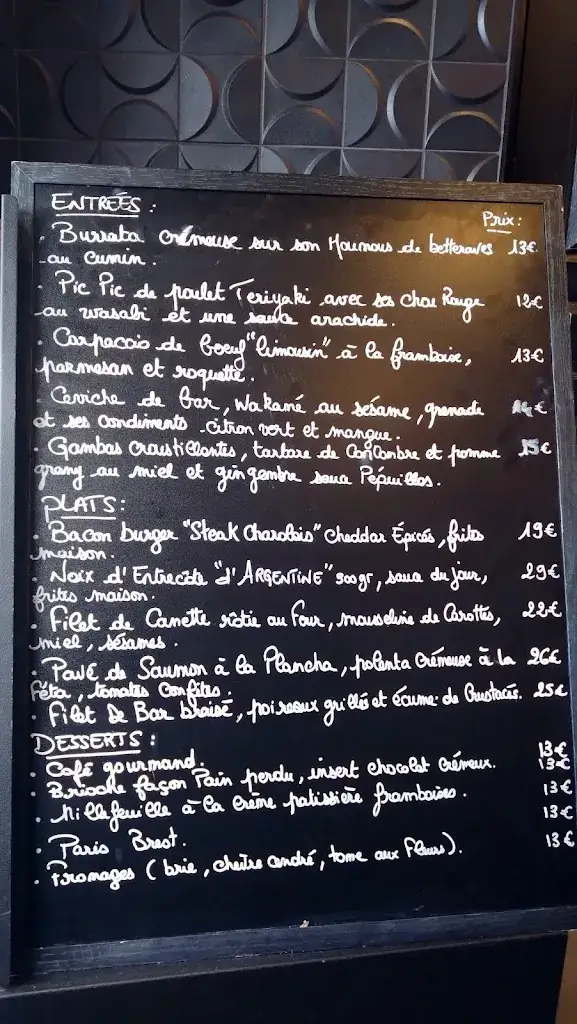 ENTRÉES :
Prix :
. Burrata crémeuse sur son Houmous de betteraves 13€
au cumin .
. Pic Pic de poulet Teriyaki avec ses chou Rouge 12€
au wasabi et une sauce arachide .
. Carpaccio de boeuf "limousin" à la framboise, 13€
parmesan et roquette .
. Ceviche de bar, wakamé au sésame, grenade 14€
et ses condiments citron vert et mangue .
. Gambas croustillantes, tartare de Concombre et pomme 15€
grany au miel et gingembre sauce Péquillos .
PLATS :
. Bacon burger "Steak Charolais" Cheddar Épicés, frites 19€
maison .
. Noix d'Entrecôte "d'ARGENTINE" 300gr, sauce du jour, 29€
frites maison .
. Filet de Canette rôtie au Four, mousseline de Carottes, 22€
miel, sésames .
. Pavé de Saumon à la Plancha, polenta Crémeuse à la 26€
Féta, tomates Confites .
. Filet de Bar braisé, poireaux grillés et écume de Crustacés. 25€
DESSERTS :
. Café gourmand. 13€
. Brioche façon Pain perdu, insert chocolat Crémeux. 13€
. Millefeuille à la Crème patissière framboises . 13€
. Paris Brest. 13€
. Fromages ( brie, chèvre cendré, tome aux Fleurs ). 13€